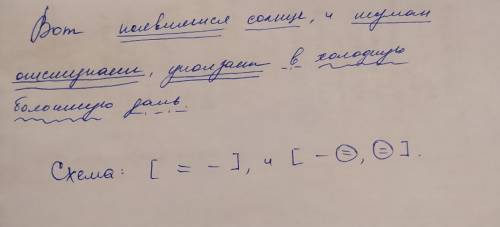 Вот появилися солнце, и туман
отступает, уползает в холодную
болотную даль.
Схема: [ = - ], и [ - =, = ].